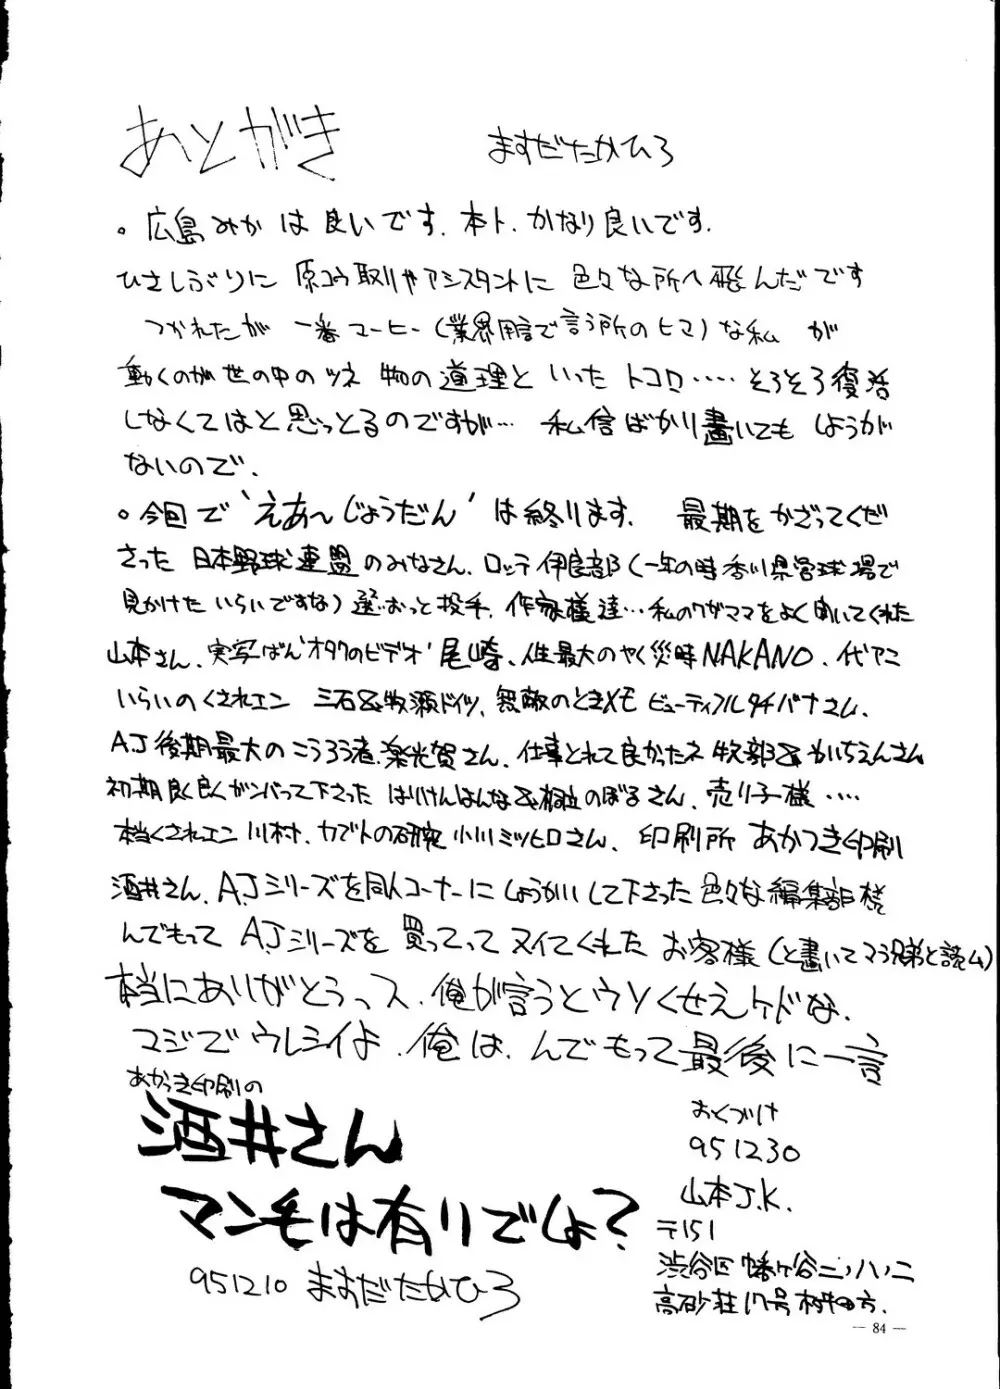 あとがき
ますだたかひろ
。広島みかは良いです、本ト、かなり良いです。
ひさしぶりに 原コウ取りやアシスタントに 色々な所へ飛んだです
つかれたが 一番コーヒー(業界用語で言う所のヒマ)な私 が
動くのが世の中のツネ 物の道理と いった トコロ····· そろそろ復活
しなくてはと思っとるのですが… 私信ばかり書いても しようが
ないので。
。今回で'えあ〜じょうだん'は終ります。 最期をかざってくだ
さった 日本野球連盟のみなさん、ロッテ伊良部(一年の時香川県営球場で
見かけた いらいですな) 投手、作家様達…私のワガママをよく聞いてくれた
山本さん、実写ばん'オタクのビデオ'尾崎、人生最大のやく災時NAKANO、代アニ
いらいのくされエン 三石&牧瀬ドイツ、無敵のときメモ ビューティフルタチバナさん、
AJ後期最大のこうろう者、楽光賀さん、仕事とれて良かったネ 牧部&かいちえんさん
初期良く良くガンバって下さった はりけんはんな&桐生のぼるさん、売り子様·····
本当くされエン 川村、カブトの研究 小川ミツヒロさん、印刷所 あかつき印刷
酒井さん、A.Jシリーズを同人コーナーにしょうかいして下さった 色々な編集部様
んでもって A.Jシリーズを 買ってって ヌイてくれた お客様(と書いてマラ兄弟と読ム)
本当にありがとうっス、俺が言うとウソくせえケドな、
マジで ウレシイよ、俺は、んでもって最後に一言
あかつき印刷の
酒井さん
マン毛は有りでしょ?
951210 ますだたかひろ
おくづけ
951230
山本J.K.
〒151
渋谷区 幡ヶ谷二ノ八ノ二
高砂荘17号 村田方.
— 84 —